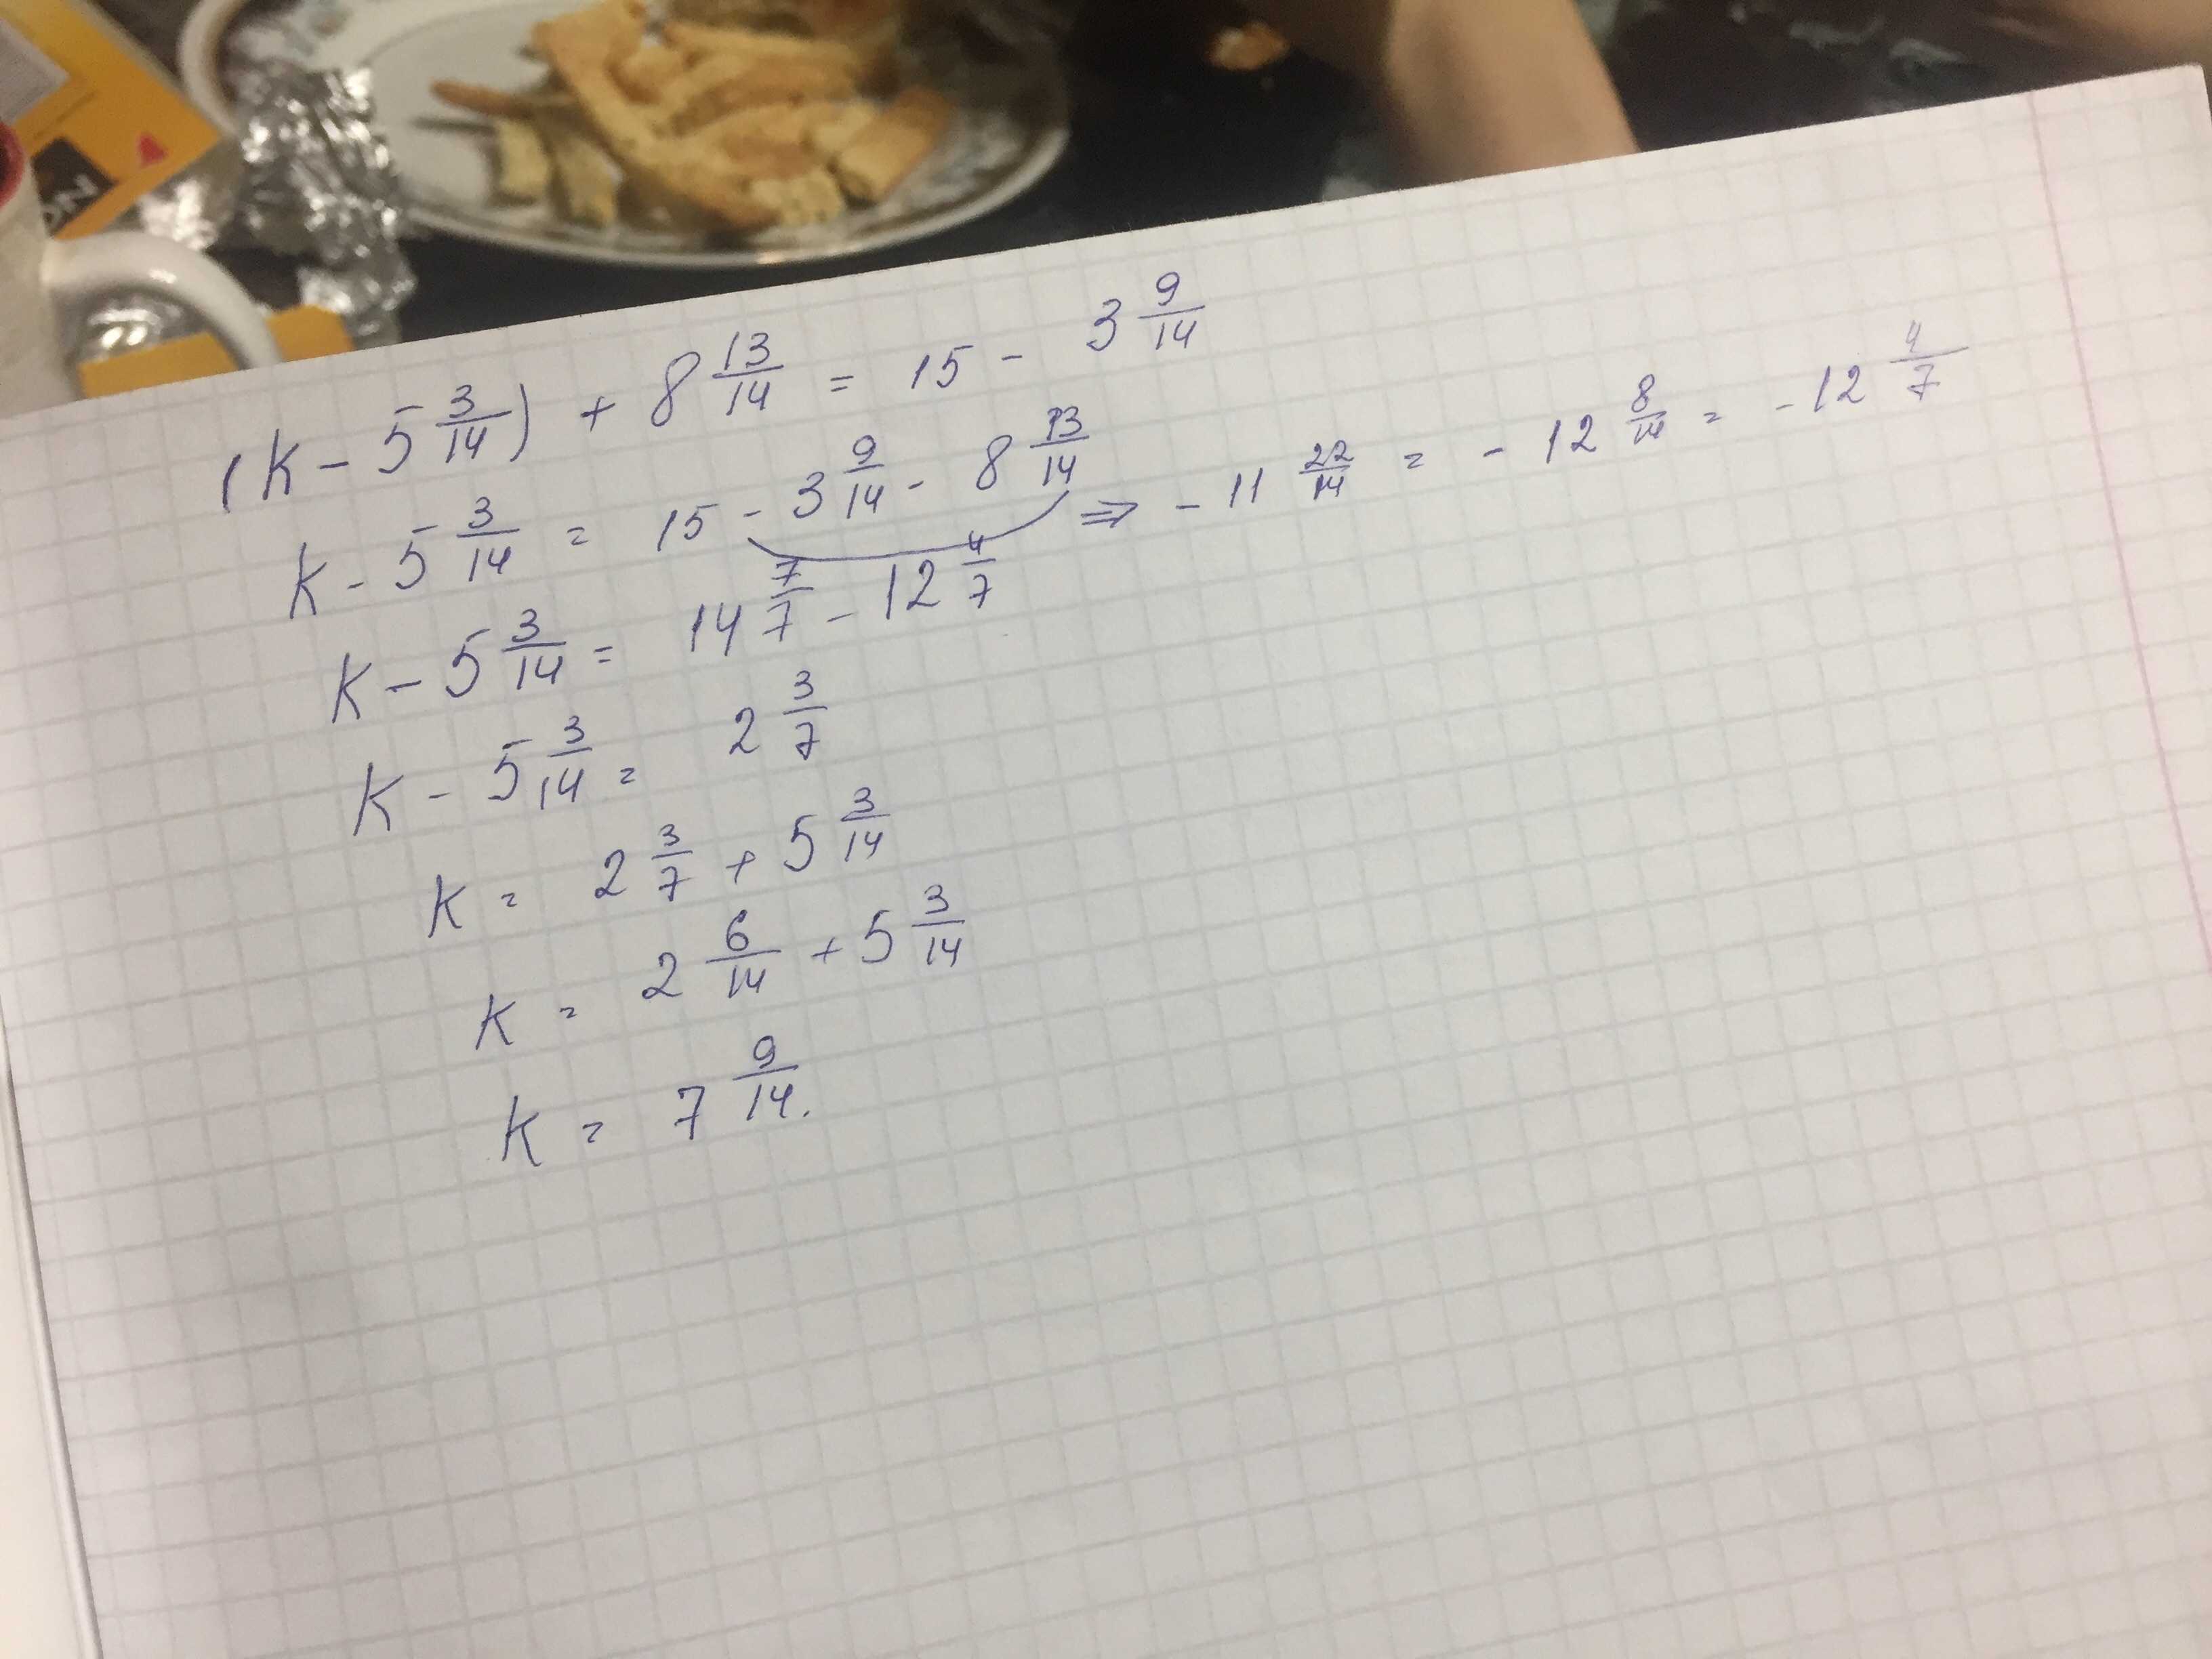 (K - 5 3/14) + 8 13/14 = 15 - 3 9/14
K - 5 3/14 = 15 - 3 9/14 - 8 13/14 ⇒ - 11 22/14 = - 12 8/14 = - 12 4/7
K - 5 3/14 = 14 7/7 - 12 4/7
K - 5 3/14 = 2 3/7
K = 2 3/7 + 5 3/14
K = 2 6/14 + 5 3/14
K = 7 9/14.